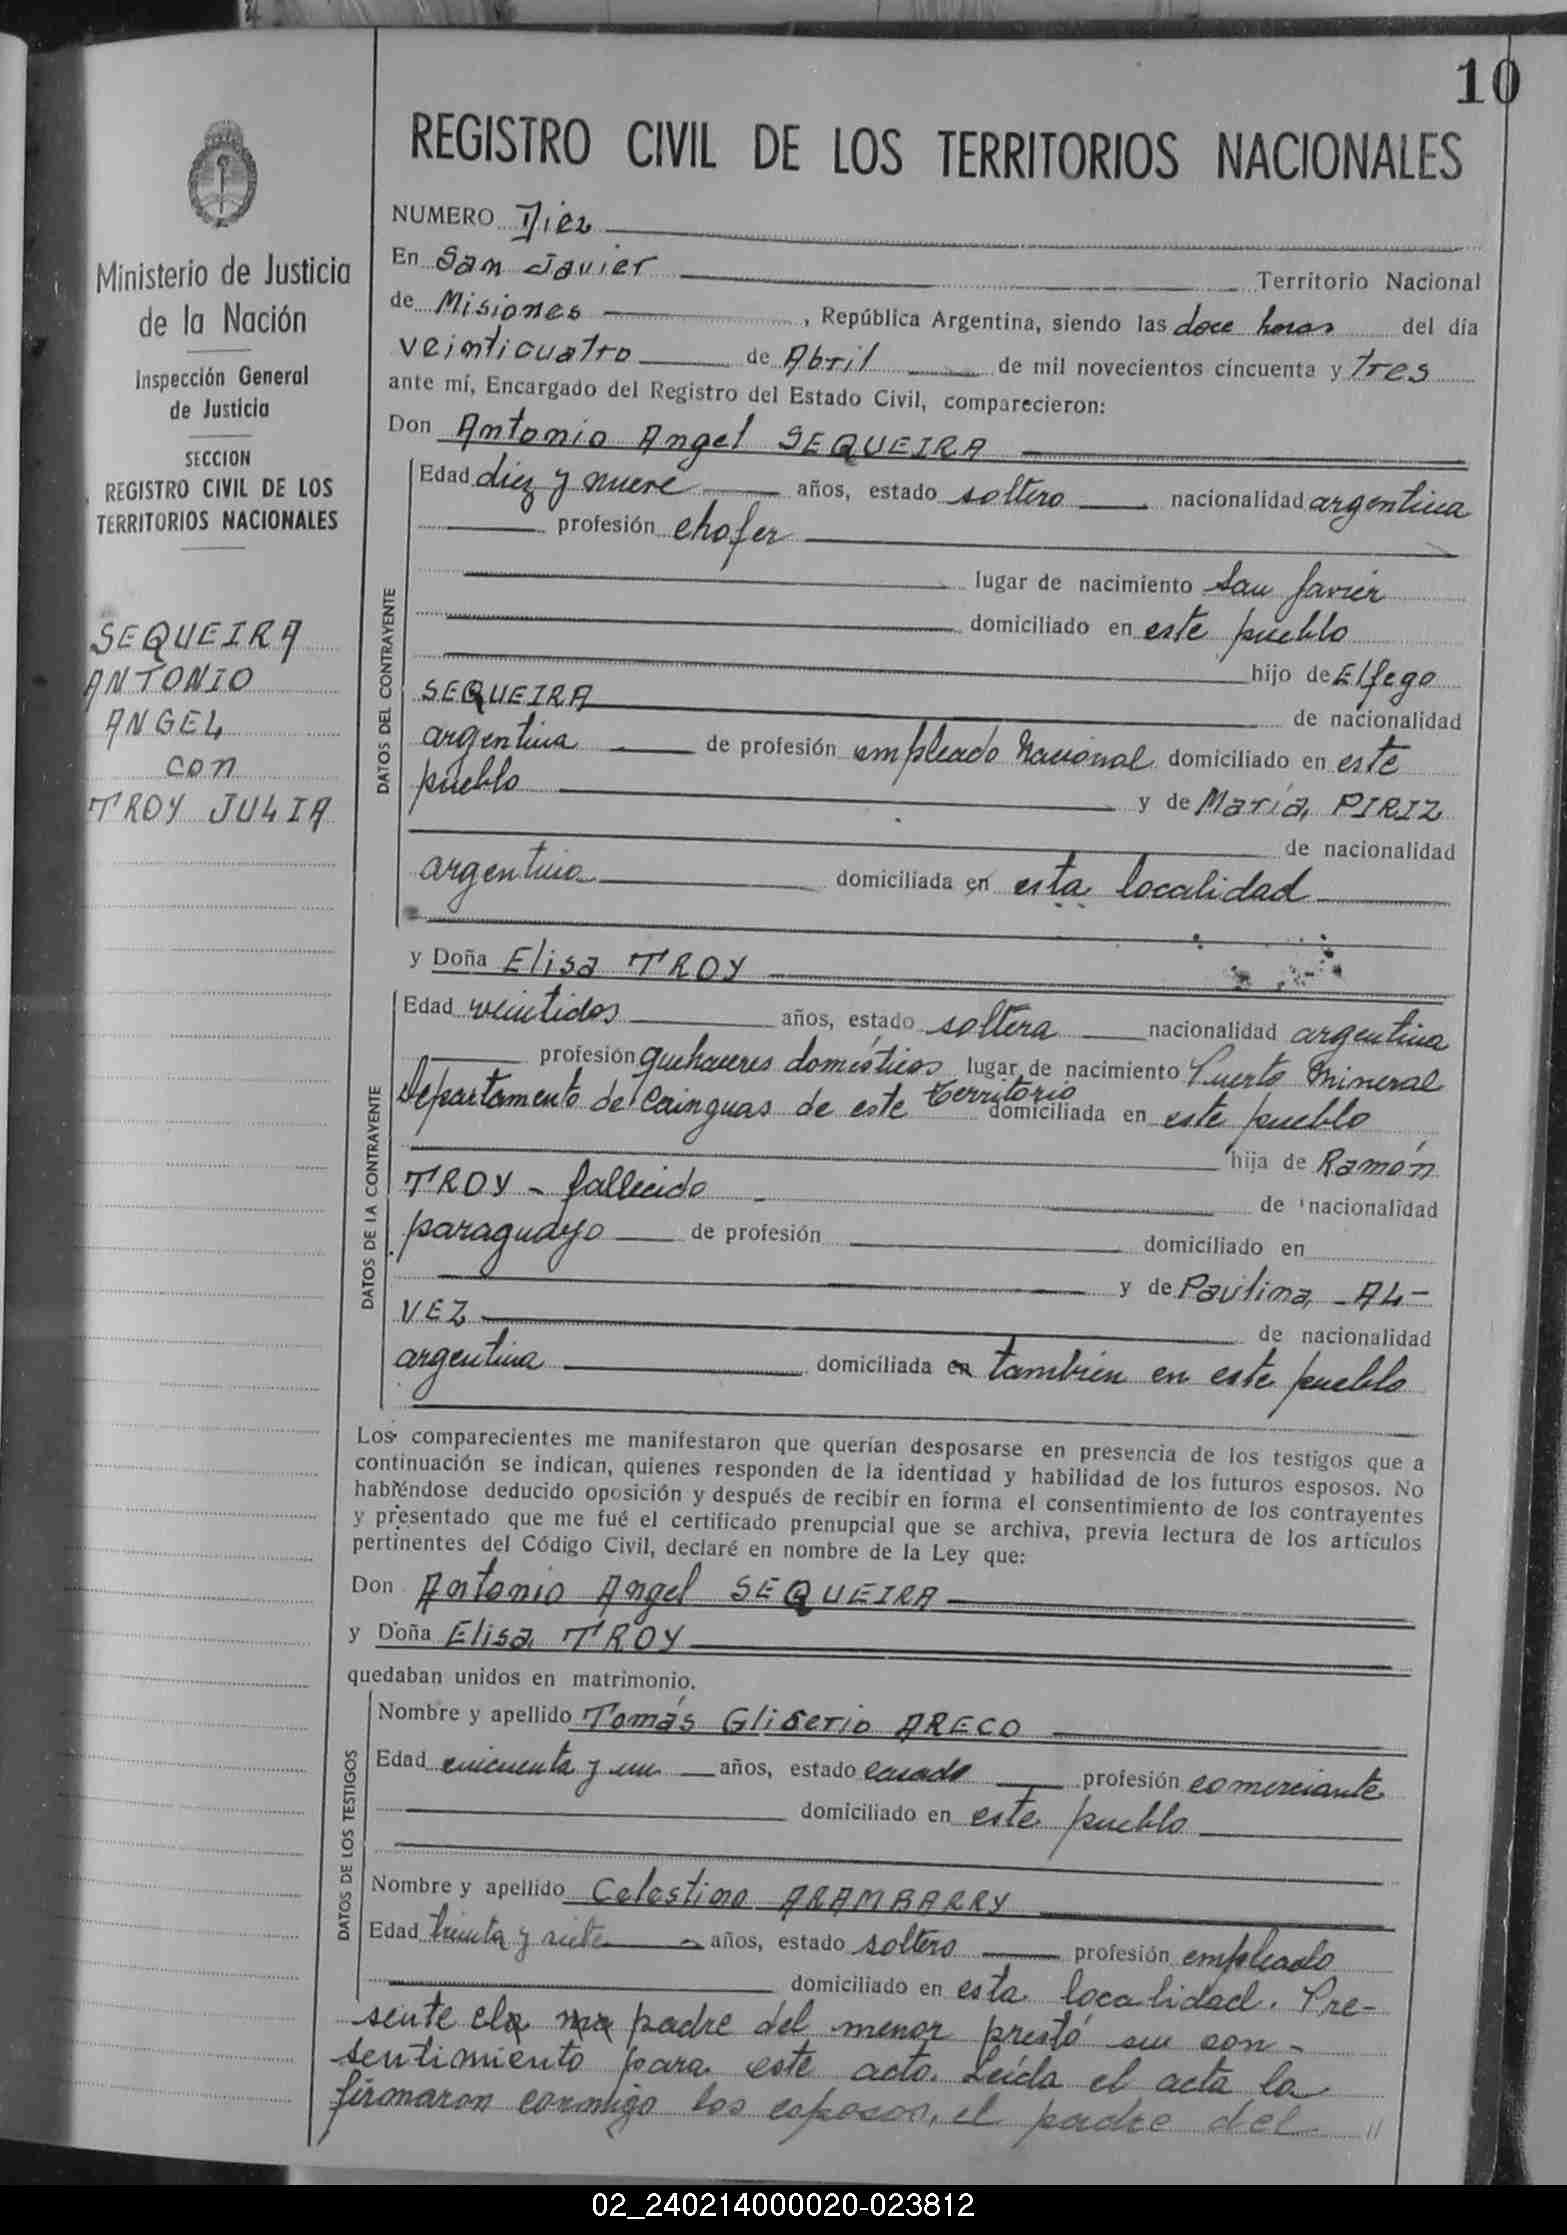 10
REGISTRO CIVIL DE LOS TERRITORIOS NACIONALES
Ministerio de Justicia
de la Nación
Inspección General
de Justicia
SECCION
REGISTRO CIVIL DE LOS
TERRITORIOS NACIONALES
SEQUEIRA
ANTONIO
ANGEL
con
TROY JULIA
NUMERO Diez
En San Javier Territorio Nacional
de Misiones, República Argentina, siendo las doce horas del día
veinticuatro de Abril de mil novecientos cincuenta y tres
ante mí, Encargado del Registro del Estado Civil, comparecieron:
Don Antonio Angel SEQUEIRA
DATOS DEL CONTRAYENTE
Edad diez y nueve años, estado soltero nacionalidad argentina
profesión chofer
lugar de nacimiento San Javier
domiciliado en este pueblo
hijo de Elfego
SEQUEIRA de nacionalidad
argentina de profesión empleado Nacional domiciliado en este
pueblo y de María PIRIZ
de nacionalidad
argentina domiciliada en esta localidad
y Doña Elisa TROY
DATOS DE LA CONTRAYENTE
Edad veintidos años, estado soltera nacionalidad argentina
profesión quehaceres domésticos lugar de nacimiento Puerto Mineral
Departamento de Cainguas de este Territorio domiciliada en este pueblo
hija de Ramón
TROY - fallecido de nacionalidad
paraguayo de profesión domiciliado en
y de Paulina AL-
VEZ de nacionalidad
argentina domiciliada en también en este pueblo
Los comparecientes me manifestaron que querían desposarse en presencia de los testigos que a
continuación se indican, quienes responden de la identidad y habilidad de los futuros esposos. No
habiéndose deducido oposición y después de recibir en forma el consentimiento de los contrayentes
y presentado que me fué el certificado prenupcial que se archiva, previa lectura de los artículos
pertinentes del Código Civil, declaré en nombre de la Ley que:
Don Antonio Angel SEQUEIRA
y Doña Elisa TROY
quedaban unidos en matrimonio.
DATOS DE LOS TESTIGOS
Nombre y apellido Tomás Gliserio ARECO
Edad cincuenta y un años, estado casado profesión comerciante
domiciliado en este pueblo
Nombre y apellido Celestino ARAMBARRY
Edad treinta y siete años, estado soltero profesión empleado
domiciliado en esta localidad. Pre-
sente el padre del menor prestó su con-
sentimiento para este acto. Leída el acta la
firmaron conmigo los esposos, el padre del //
02_240214000020-023812